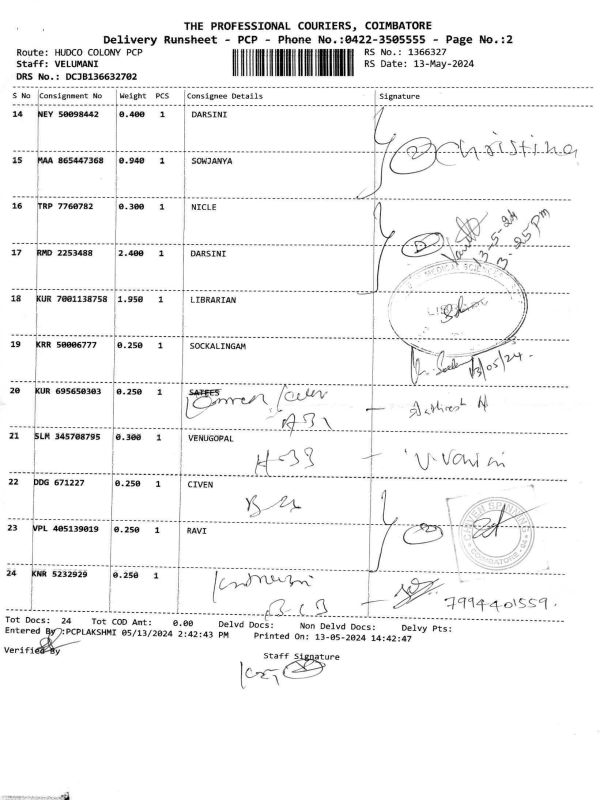 THE PROFESSIONAL COURIERS, COIMBATORE
Delivery Runsheet - PCP - Phone No.:0422-3505555 - Page No.:2
Route: HUDCO COLONY PCP RS No.: 1366327
Staff: VELUMANI RS Date: 13-May-2024
DRS No.: DCJB136632702
S No Consignment No Weight PCS Consignee Details Signature
14 NEY 50098442 0.400 1 DARSINI
2 Christina
15 MAA 865447368 0.940 1 SOWJANYA
16 TRP 7760782 0.300 1 NICLE
13-5-24
3-25 pm
17 RMD 2253488 2.400 1 DARSINI
MEDICAL SCIENCES
18 KUR 7001138758 1.950 1 LIBRARIAN
19 KRR 50006777 0.250 1 SOCKALINGAM
13/05/24.
20 KUR 695650303 0.250 1 SATEES
21 SLM 345708795 0.300 1 VENUGOPAL
H-33 -
22 DDG 671227 0.250 1 CIVEN
23 VPL 405139019 0.250 1 RAVI
CIVEN SPINNING
COIMBATORE
24 KNR 5232929 0.250 1
7994401559.
Tot Docs: 24 Tot COD Amt: 0.00 Delvd Docs: Non Delvd Docs: Delvy Pts:
Entered By :PCPLAKSHMI 05/13/2024 2:42:43 PM Printed On: 13-05-2024 14:42:47
Verified By
Staff Signature